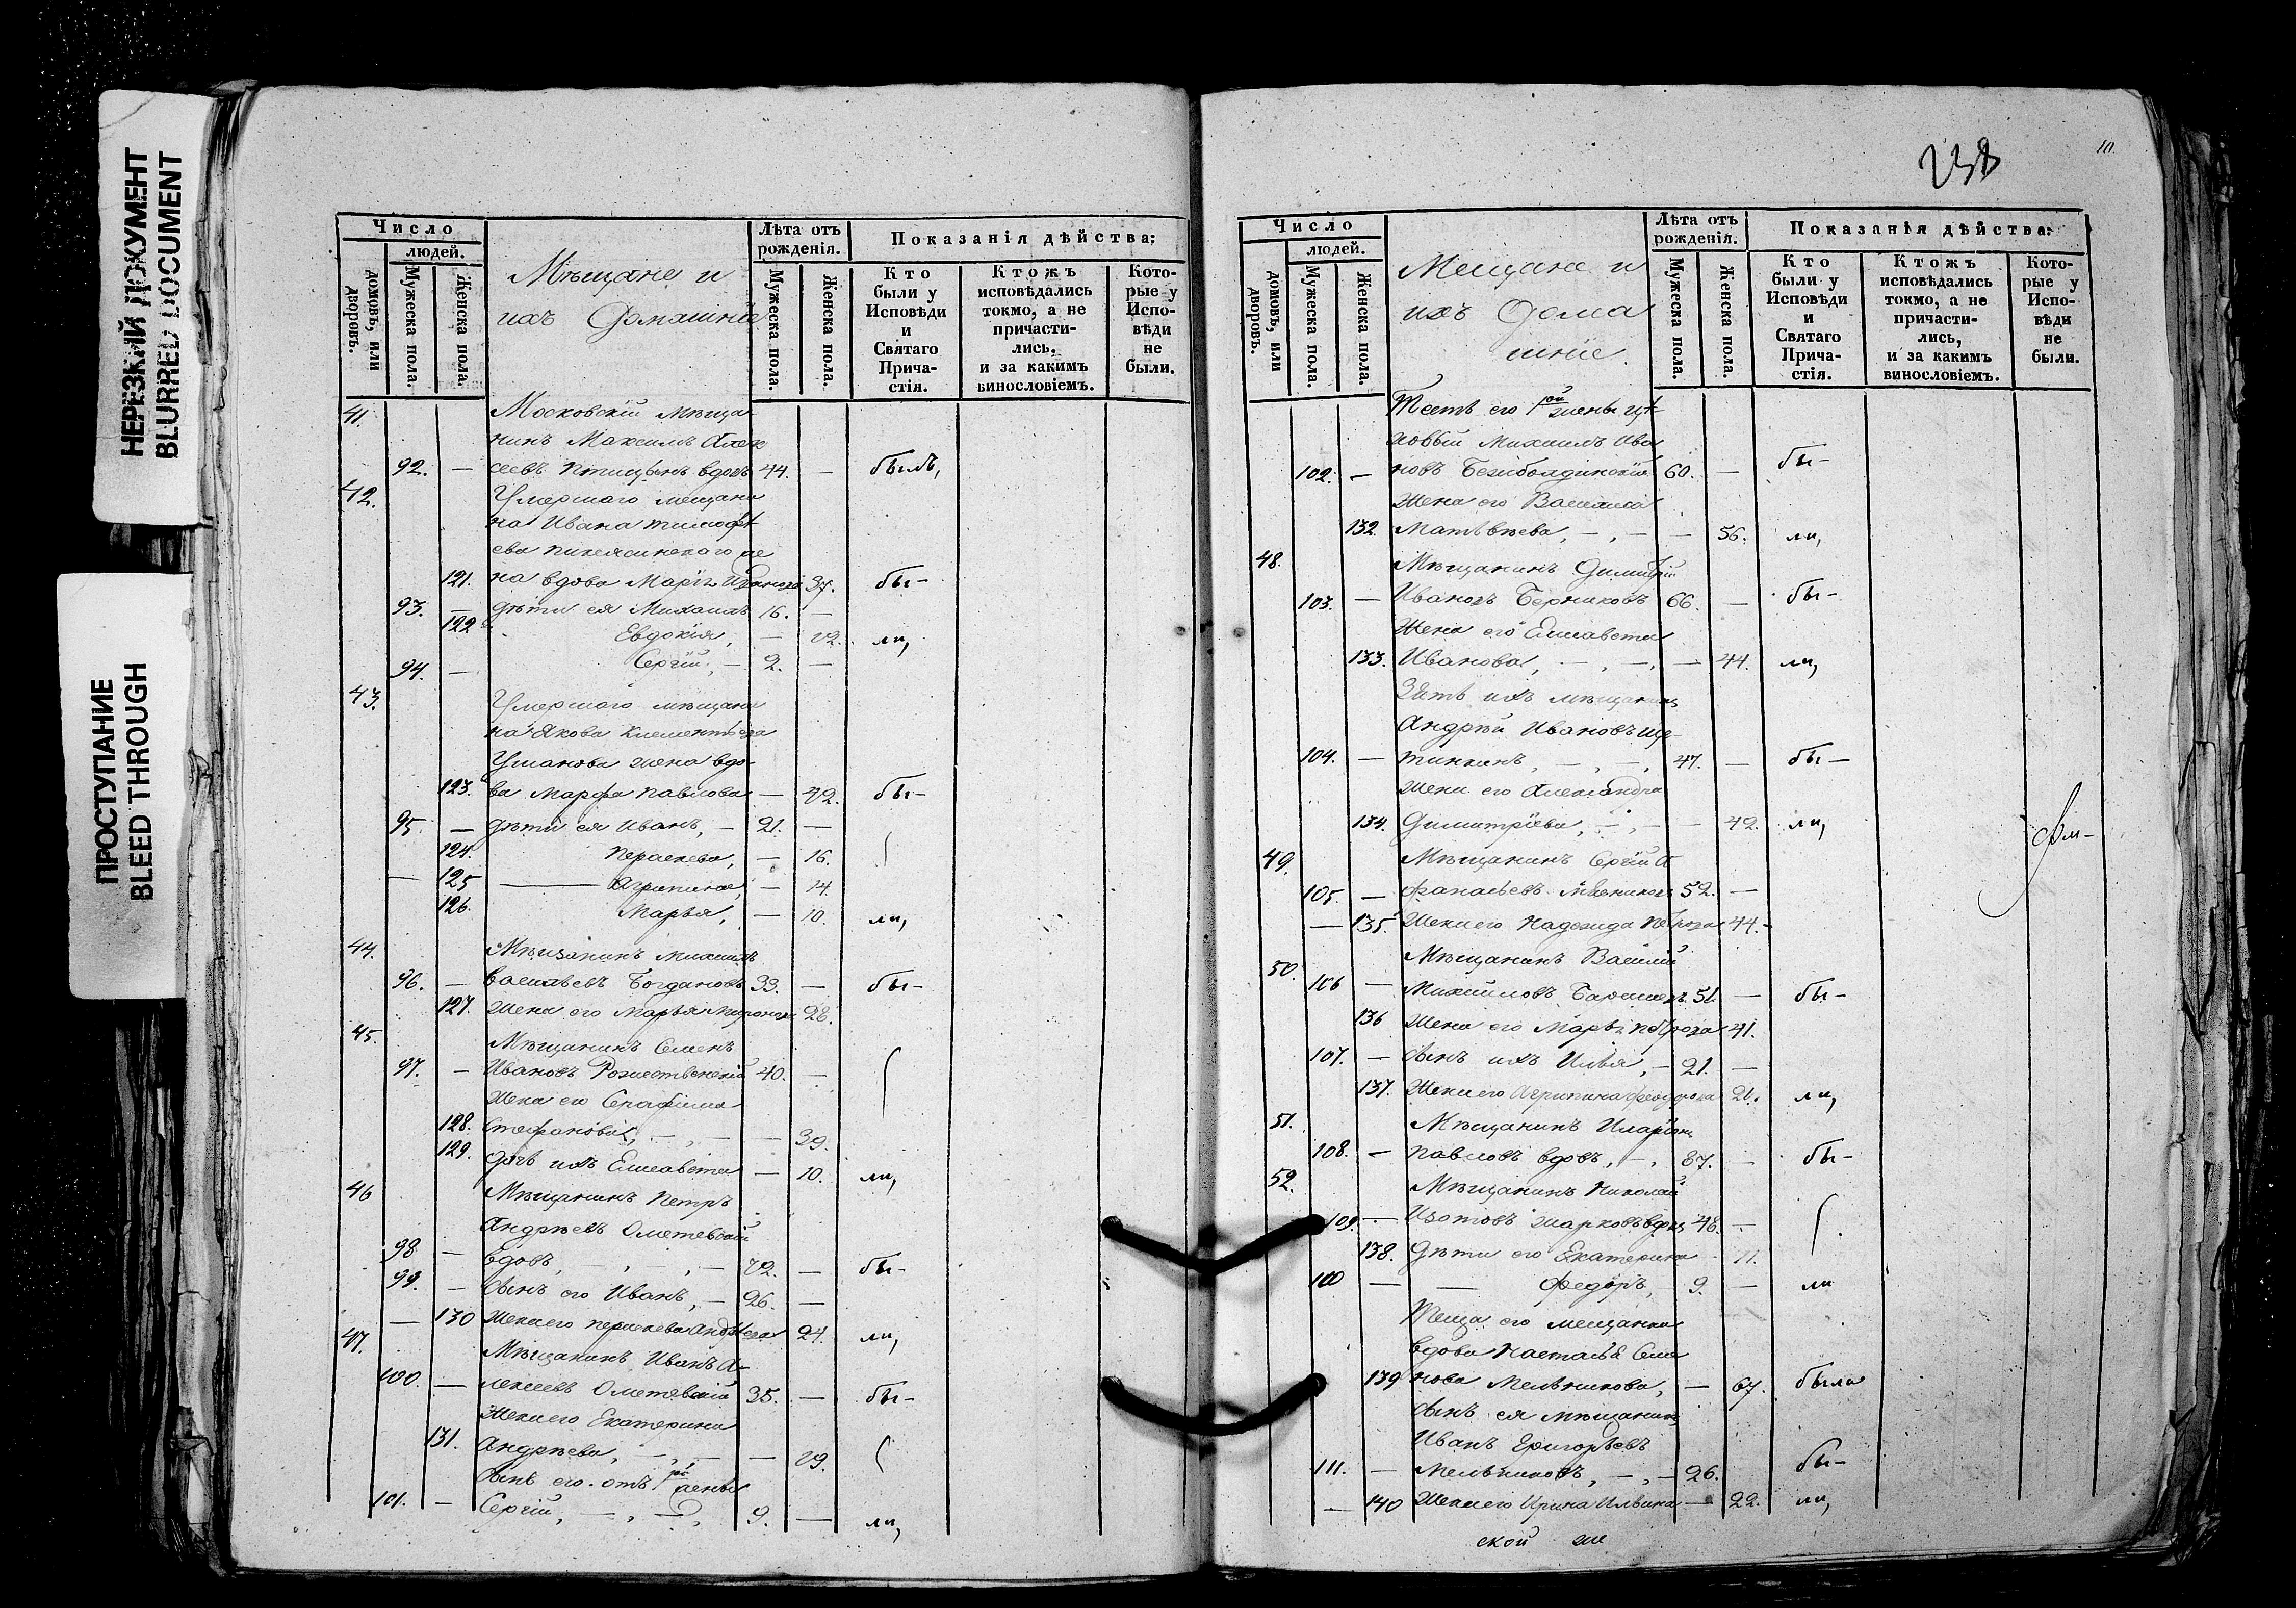 НЕРЕЗКИЙ ДОКУМЕНТ
BLURRED DOCUMENT
ПРОСТУПАНИЕ
BLEED THROUGH
Число
людей.
домовъ, или дворовъ.
Мужеска пола.
Женска пола.
Мѣщане и
ихъ Домашніе
Лѣта отъ рожденія.
Мужеска пола.
Женска пола.
Показанія дѣйства:
Кто были у Исповѣди и Святаго Прича-стія.
Ктожъ исповѣдались токмо, а не причасти-лись, и за какимъ винословіемъ.
Кото-рые у Испо-вѣди не были.
41. Московскій мѣща
нинъ Максимъ Алек
92. — сеевъ Птицынъ вдовъ 44. — былъ,
42. Умершаго мещани
на Ивана Тимофѣ
ева
121. на вдова Марія Иванова 37. бы-
93. — дѣти ея Михаилъ 16. —
122 Евдокія, — 22. ли,
94. — Сергій, — 2. —
43. Умершаго мѣщани
на Якова Клементьева
Ушакова жена вдо-
123. ва Марфа Павлова — 42. бы-
95. — дѣти ея Иванъ, — 21. —
124. Параскева, — 16.
— 125 — Агрипина, — 14.
126. Марья, — 10. ли,
44. Мѣщанинъ Михаилъ
96. — Васильевъ Богдановъ 33. — бы-
127. Жена его Марья Миронова 28.
45. Мѣщанинъ Семенъ
97. — Ивановъ Рожественскій 40. —
Жена его Серафима
128. Стефанова, — , — — 39.
129. дочь ихъ Елисавета — 10. ли,
46 Мѣщанинъ Петръ
Андрѣевъ Ометевскій
98 — вдовъ, — , — , — 72. — бы-
99. — Сынъ его Иванъ, — 26. —
— 130 Жена его Параскева Андрѣева 24. ли,
47. Мѣщанинъ Иванъ А-
100. — лексеевъ Ометевскій 35. — бы-
Жена его Екатерина
131. Андрѣева, — , — — 29.
Сынъ его отъ 1рой жены
101. — Сергій, — , — , 9. — ли,
238
10.
Число
людей.
домовъ, или дворовъ.
Мужеска пола.
Женска пола.
Мещане и
ихъ Дома
шніе.
Лѣта отъ рожденія.
Мужеска пола.
Женска пола.
Показанія дѣйства:
Кто были у Исповѣди и Святаго Прича-стія.
Ктожъ исповѣдались токмо, а не причасти-лись, и за какимъ винословіемъ.
Кото-рые у Испо-вѣди не были.
Тесть его 1рой жены цѣ-
ховый Михаилъ Ива
102. — новъ 60. — бы-
Жена его Василиса
132. Матвѣева, — , — — 56. ли,
48. Мѣщанинъ Димитрій
103. — Ивановъ Берниковъ 66. — бы-
Жена его Елисавета
133. Иванова, — , —, — 44. ли,
Зять ихъ мѣщанинъ
Андрѣй Ивановъ Ще-
104. — тинкинъ, — , — , 47. — бы-
Жена его Александра
134. Димитріева, — , — — 42. ли,
49. Мѣщанинъ Сергій А
105. — фанасьевъ 52. —
— 135. Жена его Надежда Петрова 44. -
50. Мѣщанинъ Василій
106 — Михаиловъ 51. — бы-
136 Жена его Марья Петрова 41.
107. — Сынъ ихъ Илья, — 21. —
137. Жена его Агрипина Феодорова 21. ли,
51. Мѣщанинъ Иларіонъ
108. — Павловъ вдовъ, — , 87. — бы-
52. Мѣщанинъ Николай
109. — Изотовъ Жарковъ вдовъ 48. —
138. Дѣти его Екатерина 11.
100 — — Федоръ, 9. — ли
Теща его мещанка
вдова Настасья Семе
139 нова Мельникова, — 67. была
Сынъ ея мѣщанинъ
Иванъ Григорьевъ
111. — Мельниковъ, — , — 26. бы-
— 140 Жена его Ирина Ильина — 22. ли,
ской же